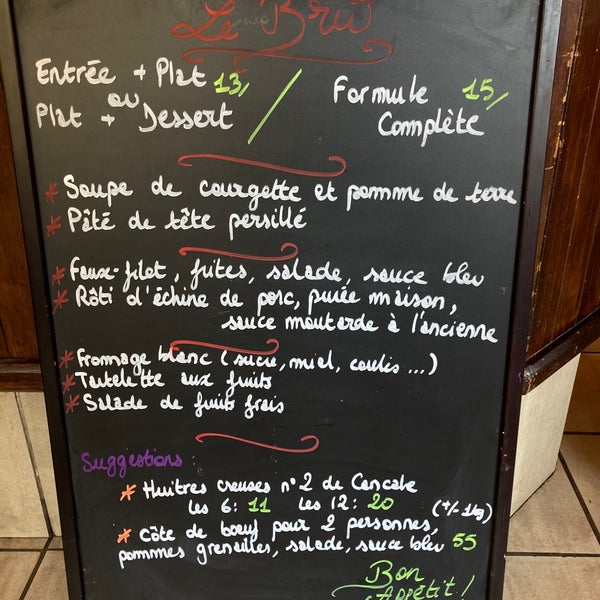 Le Bru
Entrée + Plat 13/
ou
Plat + Dessert
Formule 15/
Complète
* Soupe de courgette et pomme de terre
* Pâté de tête persillé
* Faux-filet, frites, salade, sauce bleu
* Rôti d'échine de porc, purée maison,
sauce moutarde à l'ancienne
* Fromage blanc (sucre, miel, coulis ...)
* Tartelette aux fruits
* Salade de fruits frais
Suggestions :
* Huîtres creuses n°2 de Cancale
les 6: 11 les 12: 20
(+/- 1kg)
* Côte de boeuf pour 2 personnes,
pommes grenailles, salade, sauce bleu 55
Bon
Appétit!